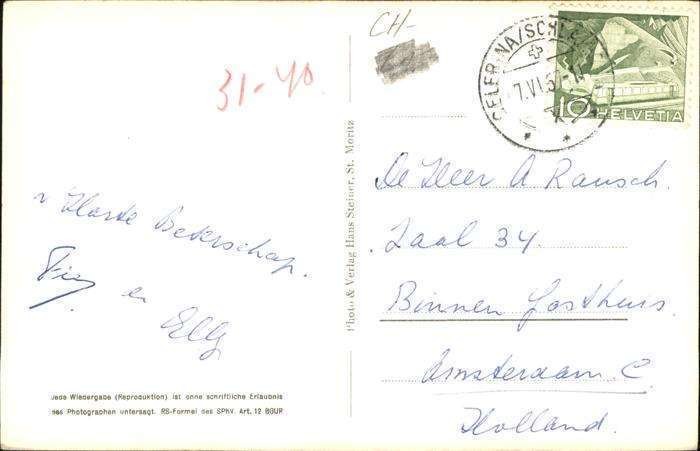 CH-
31-40
CELERINA/SCHLA
7.VI.5
10 HELVETIA
'n Harte Beterschap.
Fie
en
Elly
Photo & Verlag Hans Steiner, St. Moritz
De Heer A Rausch.
Zaal 34.
Binnen Gasthuis.
Amsterdam. C.
Holland.
Jede Wiedergabe (Reproduktion) ist ohne schriftliche Erlaubnis
des Photographen untersagt. RS-Formel des SPhV. Art. 12 BGUR